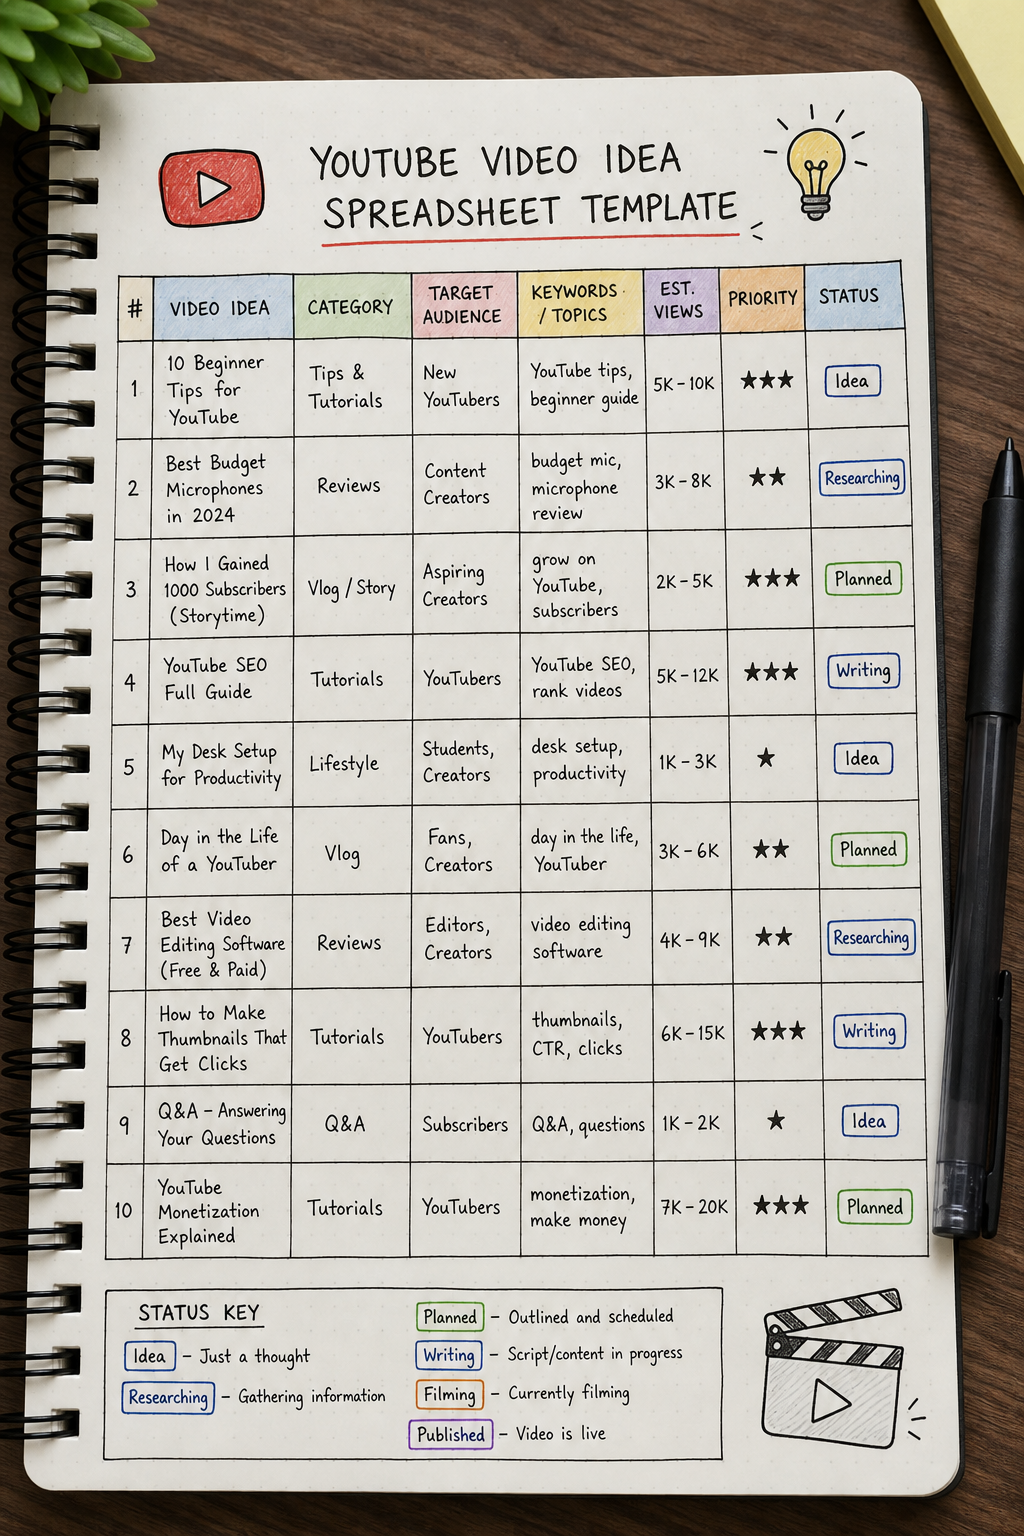 YOUTUBE VIDEO IDEA
SPREADSHEET TEMPLATE
#
VIDEO IDEA
CATEGORY
TARGET
AUDIENCE
KEYWORDS
/ TOPICS
EST.
VIEWS
PRIORITY
STATUS
1
10 Beginner
Tips for
YouTube
Tips &
Tutorials
New
YouTubers
YouTube tips,
beginner guide
5K - 10K
★★★
Idea
2
Best Budget
Microphones
in 2024
Reviews
Content
Creators
budget mic,
microphone
review
3K - 8K
★★
Researching
3
How I Gained
1000 Subscribers
(Storytime)
Vlog / Story
Aspiring
Creators
grow on
YouTube,
subscribers
2K - 5K
★★★
Planned
4
YouTube SEO
Full Guide
Tutorials
YouTubers
YouTube SEO,
rank videos
5K - 12K
★★★
Writing
5
My Desk Setup
for Productivity
Lifestyle
Students,
Creators
desk setup,
productivity
1K - 3K
★
Idea
6
Day in the Life
of a YouTuber
Vlog
Fans,
Creators
day in the life,
YouTuber
3K - 6K
★★
Planned
7
Best Video
Editing Software
(Free & Paid)
Reviews
Editors,
Creators
video editing
software
4K - 9K
★★
Researching
8
How to Make
Thumbnails That
Get Clicks
Tutorials
YouTubers
thumbnails,
CTR, clicks
6K - 15K
★★★
Writing
9
Q&A - Answering
Your Questions
Q&A
Subscribers
Q&A, questions
1K - 2K
★
Idea
10
YouTube
Monetization
Explained
Tutorials
YouTubers
monetization,
make money
7K - 20K
★★★
Planned
STATUS KEY
Idea - Just a thought
Researching - Gathering information
Planned - Outlined and scheduled
Writing - Script/content in progress
Filming - Currently filming
Published - Video is live